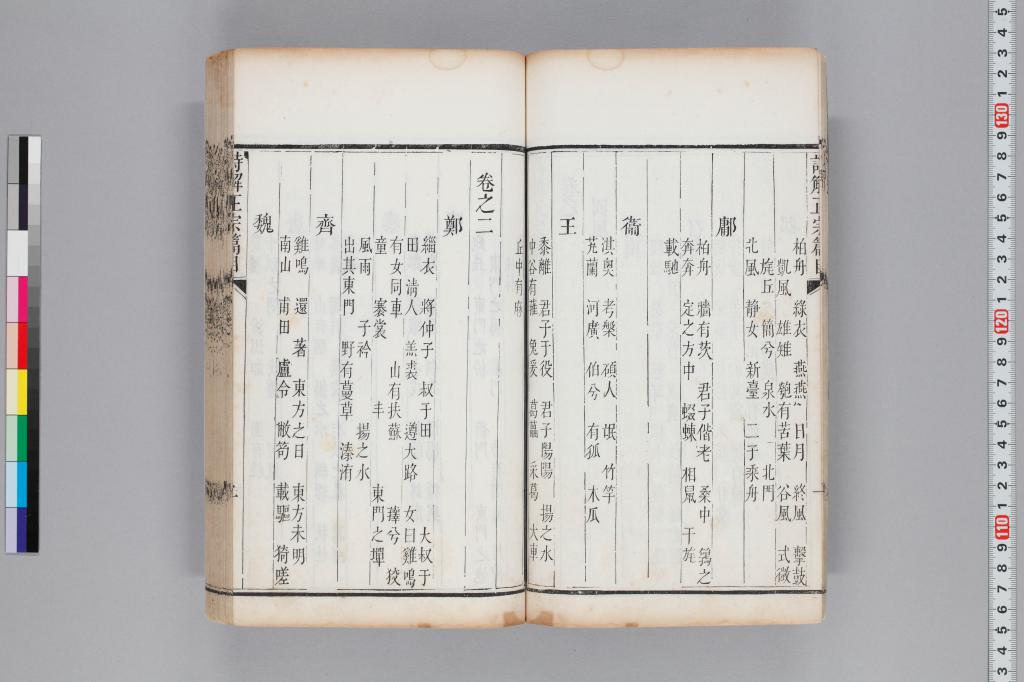 詩解正宗篇目
一
柏舟 綠衣 燕燕 日月 終風 擊鼓
凱風 雄雉 匏有苦葉 谷風 式微
旄丘 簡兮 泉水 北門
北風 靜女 新臺 二子乘舟
鄘
柏舟 牆有茨 君子偕老 桑中 鶉之
奔奔 定之方中 蝃蝀 相鼠 干旄
載馳
衛
淇奧 考槃 碩人 氓 竹竿
芄蘭 河廣 伯兮 有狐 木瓜
王
黍離 君子于役 君子陽陽 揚之水
中谷有蓷 兔爰 葛藟 采葛 大車
丘中有麻
卷之二
鄭
緇衣 將仲子 叔于田 大叔于
田 清人 羔裘 遵大路 女曰雞鳴
有女同車 山有扶蘇 蘀兮 狡
童 褰裳 丰 東門之墠
風雨 子衿 揚之水
出其東門 野有蔓草 溱洧
齊
雞鳴 還 著 東方之日 東方未明
南山 甫田 盧令 敝笱 載驅 猗嗟
魏
詩解正宗篇目
130
120
110